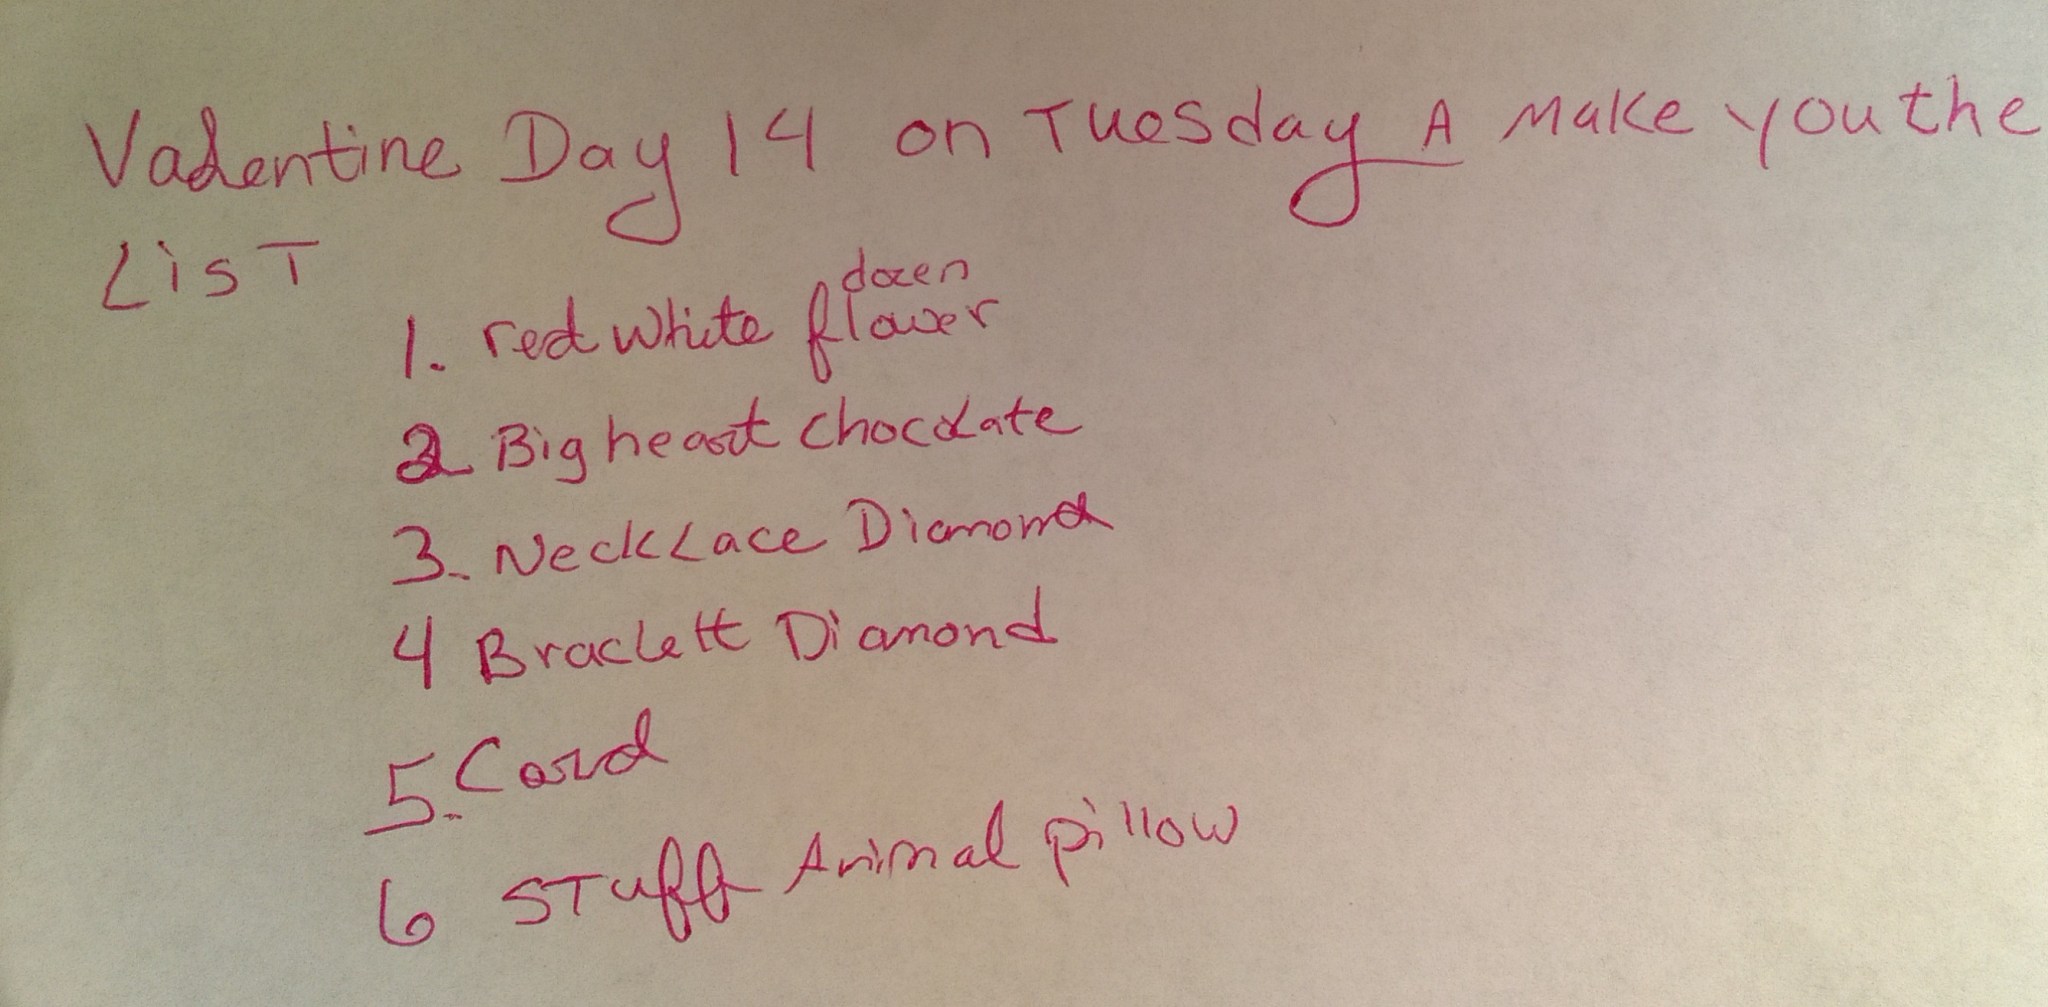 Valentine Day 14 on Tuesday A make you the
List
dozen
1. red white flower
2 Big heart chocolate
3. Necklace Diamond
4 Braclett Diamond
5. Card
6 Stuff Animal pillow